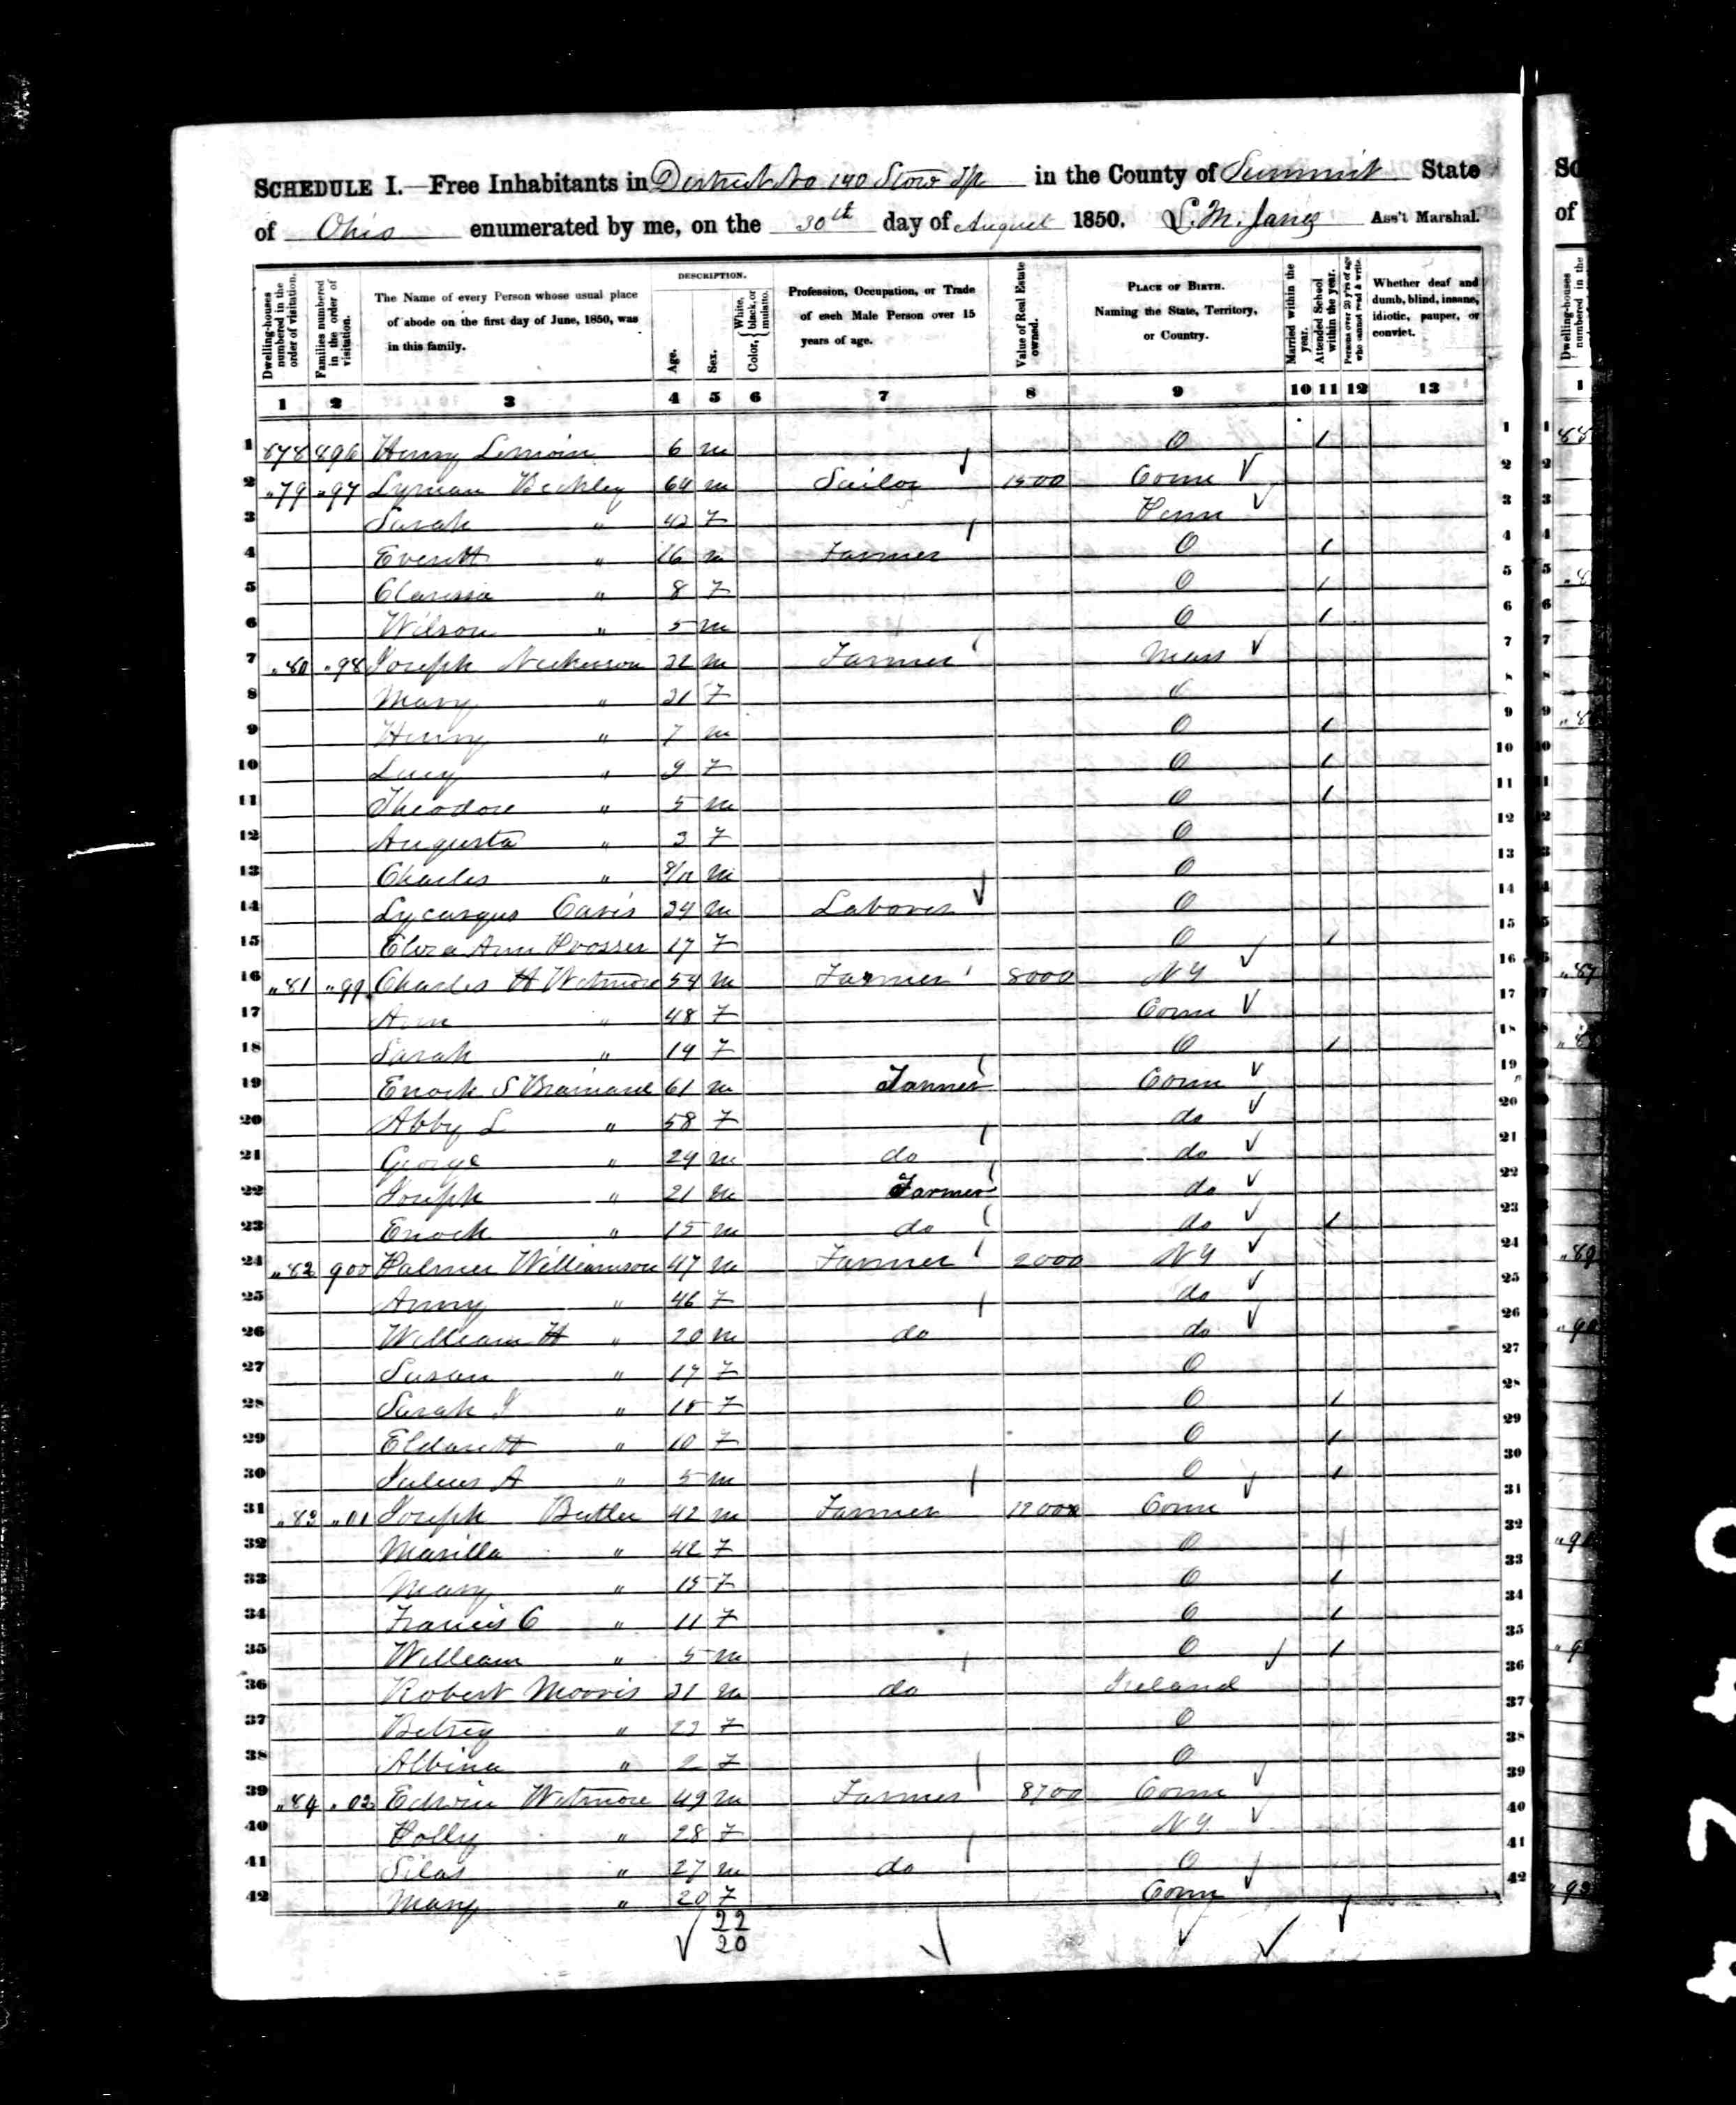 SCHEDULE I.—Free Inhabitants in District No 140 Stow Tp in the County of Summit State
of Ohio enumerated by me, on the 30th day of August 1850. Ass't Marshal.
Dwelling-houses numbered in the order of visitation.
Families numbered in the order of visitation.
The Name of every Person whose usual place of abode on the first day of June, 1850, was in this family.
DESCRIPTION.
Age.
Sex.
Color, { White, black, or mulatto.
Profession, Occupation, or Trade of each Male Person over 15 years of age.
Value of Real Estate owned.
PLACE OF BIRTH. Naming the State, Territory, or Country.
Married within the year.
Attended School within the year.
Persons over 20 y'rs of age who cannot read & write.
Whether deaf and dumb, blind, insane, idiotic, pauper, or convict.
1 2 3 4 5 6 7 8 9 10 11 12 13
1 878 896 Henry 6 m O 1 1
2 "79 "97 Lyman Beckley 64 m 1500 Conn 2
3 Sarah " 42 F Penn 3
4 Everett " 16 m Farmer O 1 4
5 Clarissa " 8 F O 1 5
6 Wilson " 5 m O 1 6
7 "80 "98 Joseph Nickerson 32 m Farmer Mass 7
8 Mary " 31 F O 8
9 Henry " 7 m O 1 9
10 Lucy " 9 F O 1 10
11 Theodore " 5 m O 1 11
12 Augusta " 3 F O 12
13 Charles " 8/12 m O 13
14 Lycurgus 24 m Laborer O 14
15 Eliza Ann Prosser 17 F O 1 15
16 "81 "99 Charles H Wetmore 54 m Farmer 8000 NY 16
17 Ann " 48 F Conn 17
18 Sarah " 19 F O 1 18
19 Enoch S Brainard 61 m Conn 19
20 Abby L " 58 F do 20
21 George " 24 m do do 21
22 Joseph " 21 m Farmer do 22
23 Enoch " 15 m do do 1 23
24 "82 900 Palmer Williamson 47 m Farmer 2000 NY 24
25 Anny " 46 F do 25
26 William H " 20 m do do 26
27 Susan " 17 F O 27
28 Sarah J " 15 F O 1 28
29 " 10 F O 1 29
30 Julius A " 5 m O 1 30
31 "83 "01 Joseph Butler 42 m Farmer Conn 31
32 Marilla " 42 F O 32
33 Mary " 15 F O 1 33
34 Francis C " 11 F O 1 34
35 William " 5 m O 1 35
36 Robert Morris 31 m do Ireland 36
37 Betsey " 23 F O 37
38 Albina " 2 F O 38
39 "84 "02 Edwin Wetmore 49 m Farmer 8700 Conn 39
40 Polly " 28 F NY 40
41 Silas " 27 m do O 41
42 Mary " 20 F Conn 42
22
20